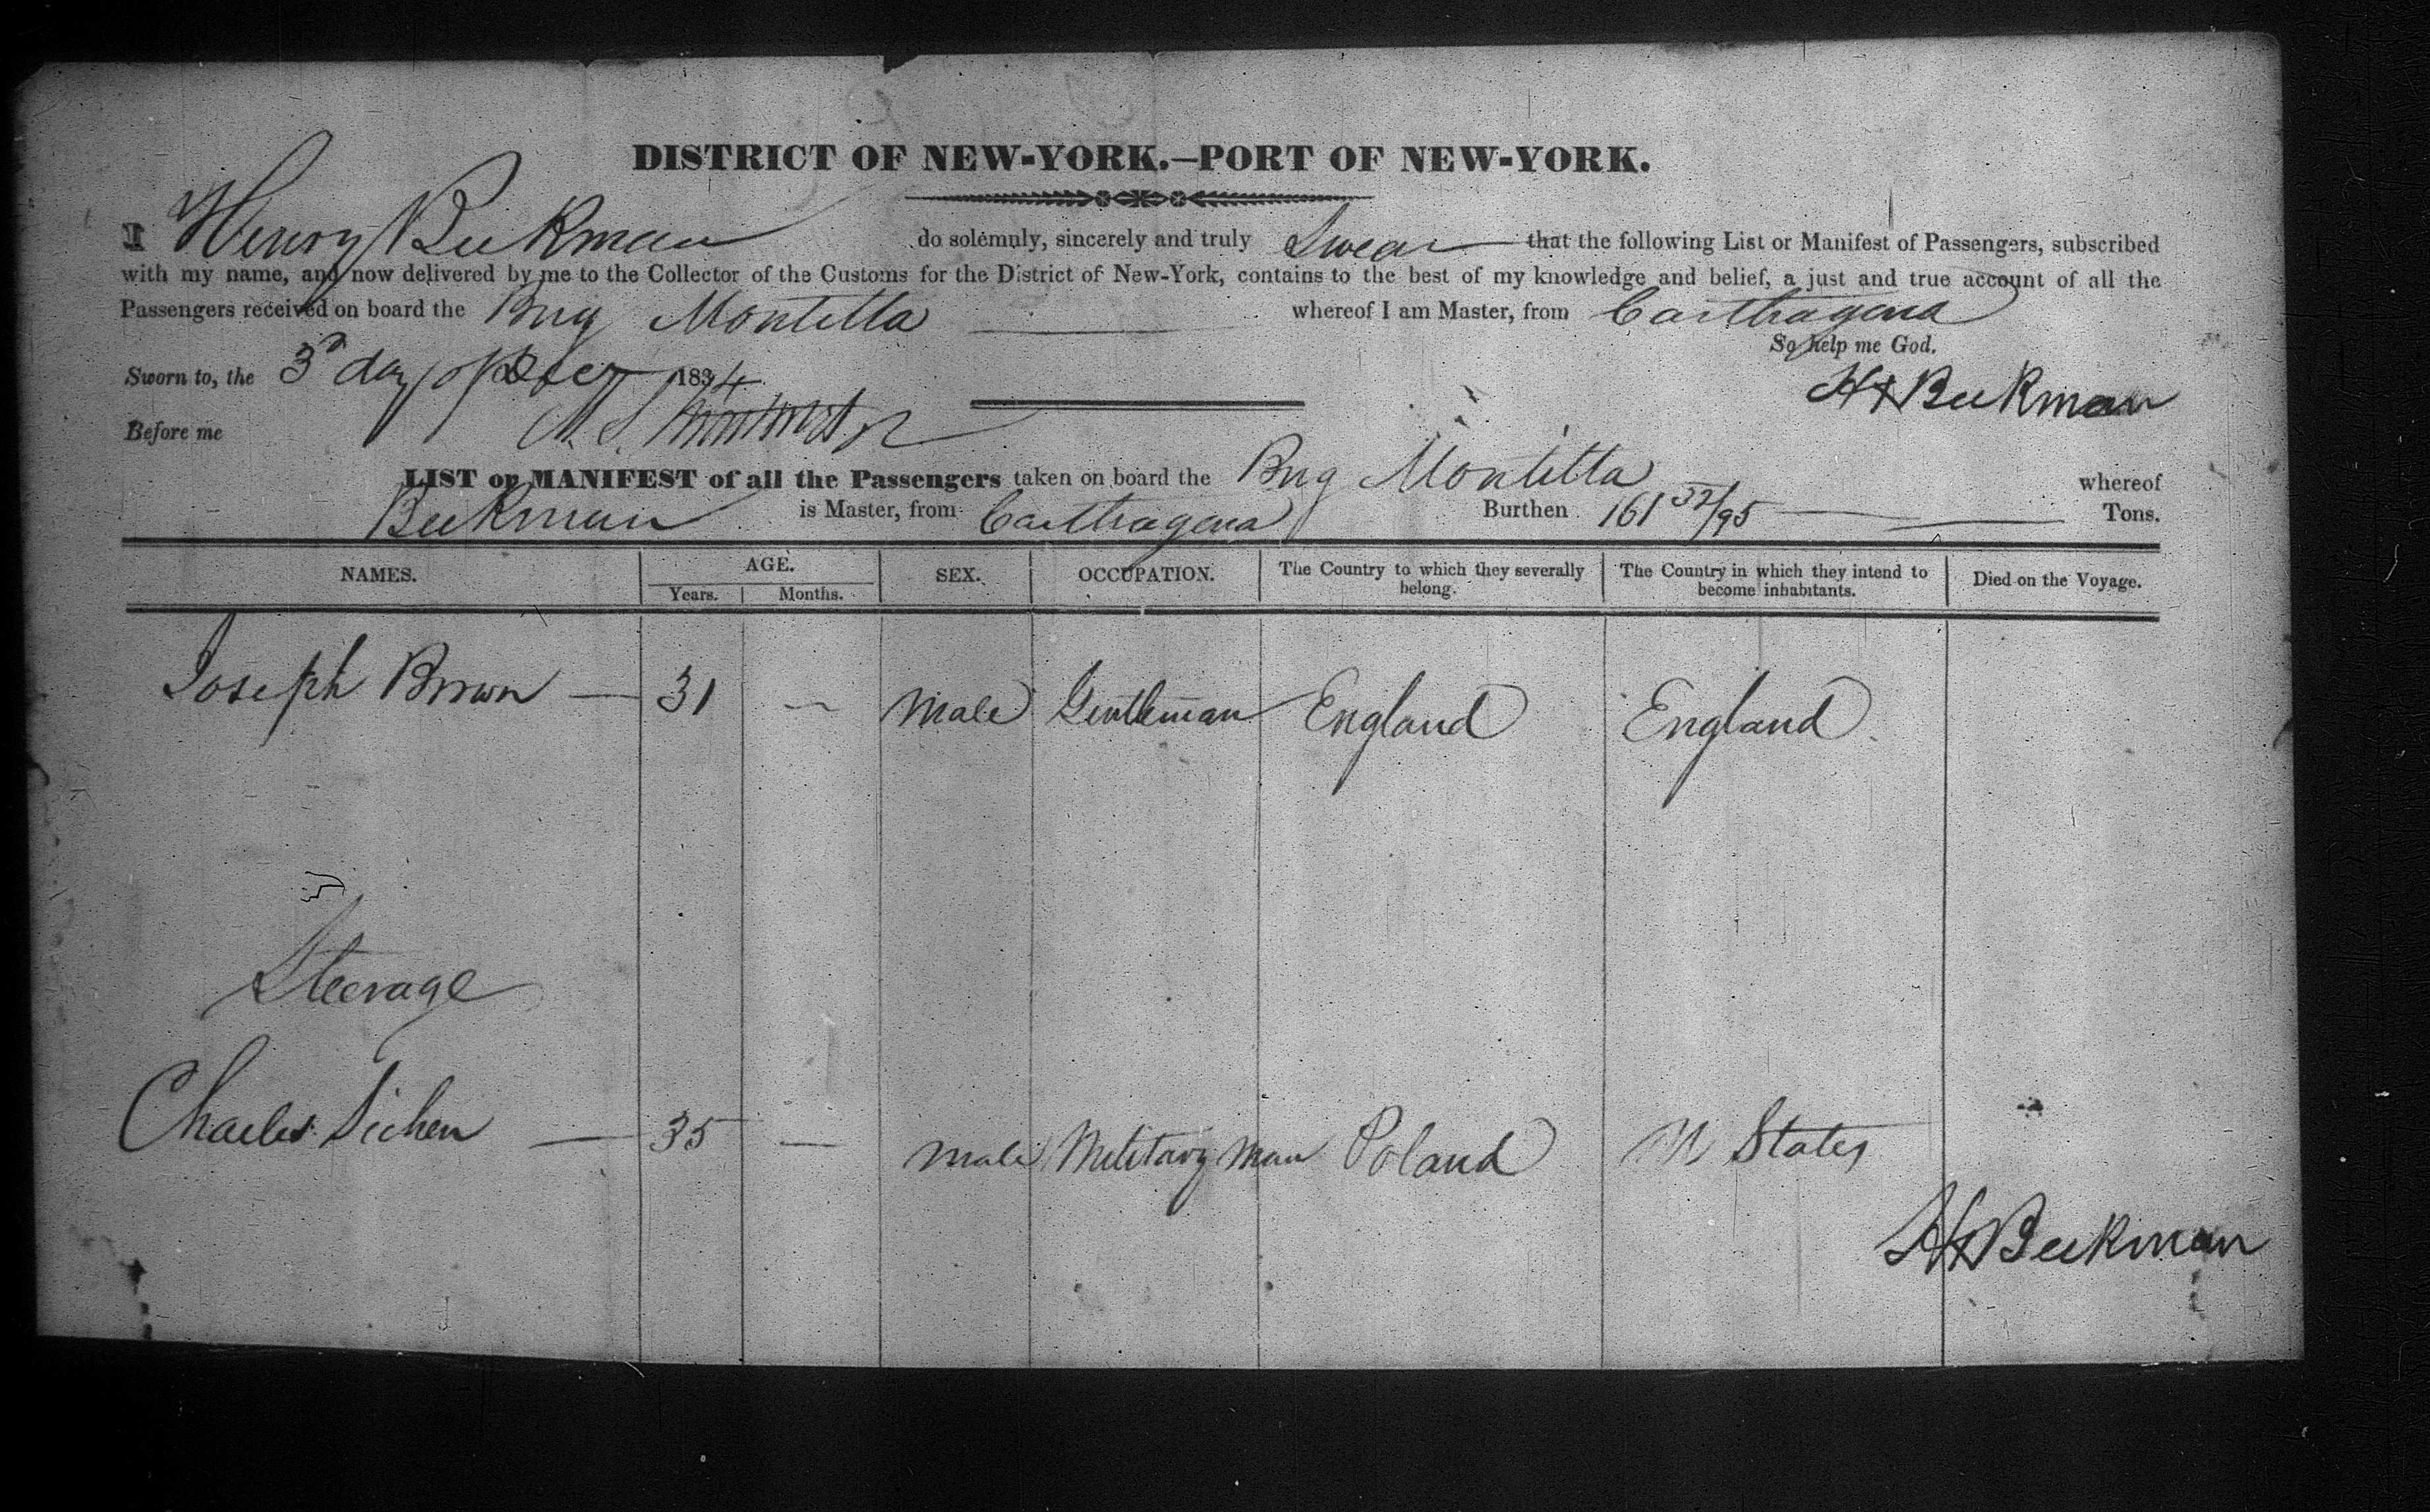 DISTRICT OF NEW-YORK.—PORT OF NEW-YORK.
I Henry Beekman do solemnly, sincerely and truly Swear that the following List or Manifest of Passengers, subscribed
with my name, and now delivered by me to the Collector of the Customs for the District of New-York, contains to the best of my knowledge and belief, a just and true account of all the
Passengers received on board the Brig Montilla whereof I am Master, from Carthagena
So help me God.
Sworn to, the 3d day of Decr 1834
H Beekman
Before me
LIST or MANIFEST of all the Passengers taken on board the Brig Montilla whereof
Beekman is Master, from Carthagena Burthen 161 52/95 Tons.
NAMES. AGE. SEX. OCCUPATION. The Country to which they severally belong. The Country in which they intend to become inhabitants. Died on the Voyage.
Years. Months.
Joseph Brown — 31 — Male Gentleman England England
Steerage
Charles — 35 — Male Military Man Poland U States
H Beekman